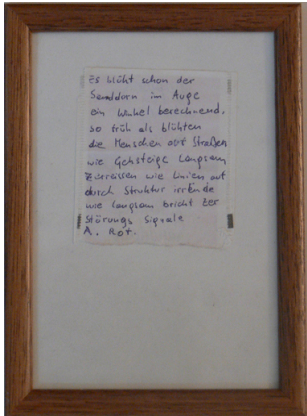 Es blüht schon der
Sanddorn im Auge
ein Winkel berechnend.
so früh als blühten
die Menschen auf Straßen
wie Gehsteige langsam
zerreissen wie Linien auf
durch Struktur irrende
wie langsam bricht der
Störungs Signale
A. Rot.